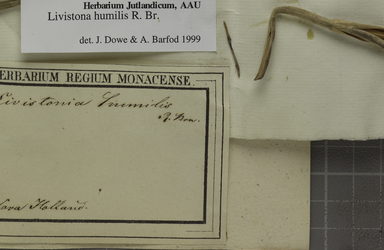 Herbarium Jutlandicum, AAU
Livistona humilis R. Br.
det. J. Dowe & A. Barfod 1999
ERBARIUM REGIUM MONACENSE.
Livistonia humilis
R. Brow.
Nova Holland.